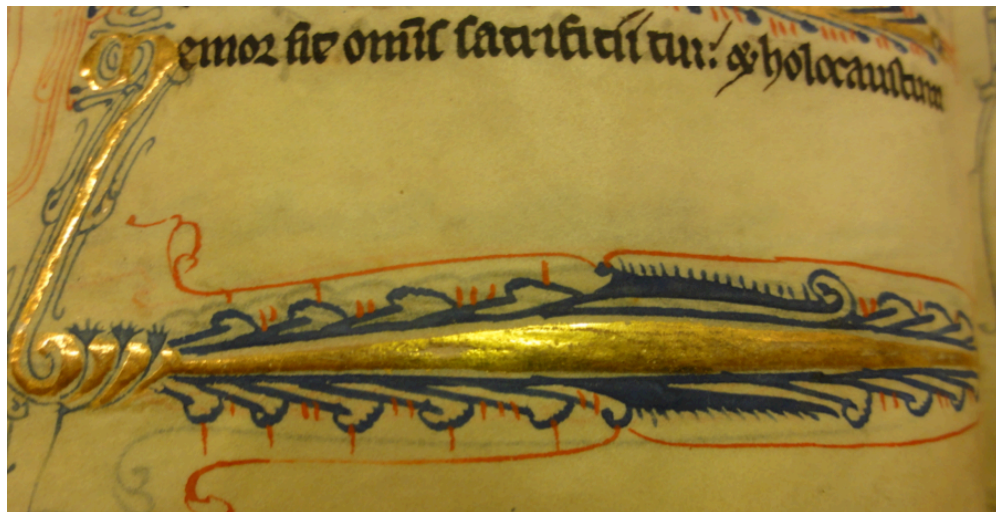 emor sit om̅is sacrificii tui: & holocaustum